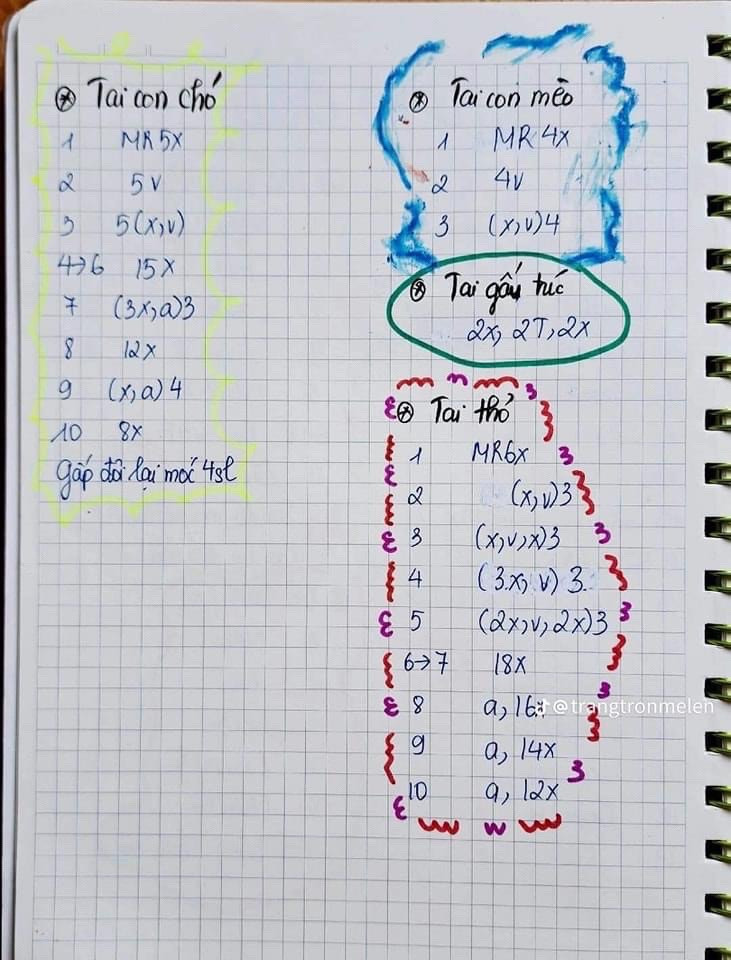 ⊛ Tai con chó
1 MR 5x
2 5v
3 5(x,v)
4→6 15x
7 (3x,a)3
8 12x
9 (x,a)4
10 8x
gấp đôi lại móc 4sl
⊛ Tai con mèo
1 MR 4x
2 4v
3 (x,v)4
⊛ Tai gấu trúc
2x, 2T, 2x
⊛ Tai thỏ
1 MR6x
2 (x,v)3
3 (x,v,x)3
4 (3x, v) 3
5 (2x,v,2x)3
6→7 18x
8 a, 16x
9 a, 14x
10 a, 12x
@trangtronmelen